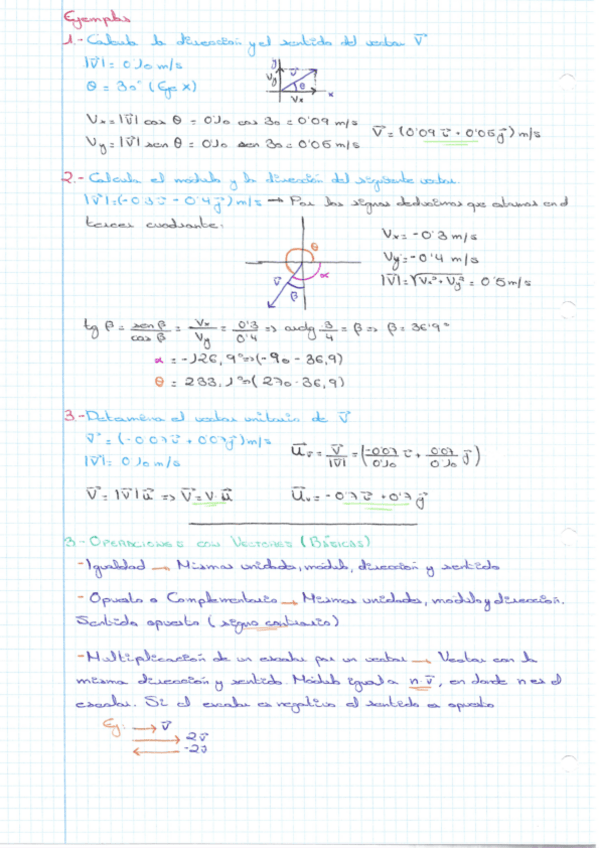 Ejemplos
1.- Calcula la dirección y el sentido del vector v⃗
|v⃗| = 0'10 m/s
θ = 30° (Eje x)
y
Vy v⃗ θ
Vx x
Vx = |v⃗| cos θ = 0'10 cos 30 = 0'09 m/s
v⃗ = (0'09 i⃗ + 0'05 j⃗) m/s
Vy = |v⃗| sen θ = 0'10 sen 30 = 0'05 m/s
2.- Calcula el módulo y la dirección del siguiente vector.
|v⃗| = (-0'3 i⃗ - 0'4 j⃗) m/s → Por los signos deducimos que estamos en el
tercer cuadrante:
θ
α
v⃗
β
Vx = -0'3 m/s
Vy = -0'4 m/s
|v⃗| = √Vx² + Vy² = 0'5 m/s
tg β = sen β / cos β = Vx / Vy = 0'3 / 0'4 => arctg 3/4 = β => β = 36'9°
α = -126,9° => (-90 - 36,9)
θ = 233,1° => (270 - 36,9)
3.- Determina el vector unitario de v⃗
v⃗ = (-0'07 i⃗ + 0'07 j⃗) m/s
|v⃗| = 0'10 m/s
u⃗v = v⃗ / |v⃗| = (-0'07 / 0'10 i⃗ + 0'07 / 0'10 j⃗)
v⃗ = |v⃗| u⃗ => v⃗ = v · u⃗
u⃗v = -0'7 i⃗ + 0'7 j⃗
3.- Operaciones con Vectores (Básicas)
- Igualdad → Mismas unidades, módulo, dirección y sentido
- Opuesto o Complementario → Mismas unidades, módulo y dirección.
Sentido opuesto (signo contrario)
- Multiplicación de un escalar por un vector → Vector con la
misma dirección y sentido. Módulo igual a n·v⃗, en donde n es el
escalar. Si el escalar es negativo el sentido es opuesto
Ej: → v⃗
→ 2v⃗
← -2v⃗